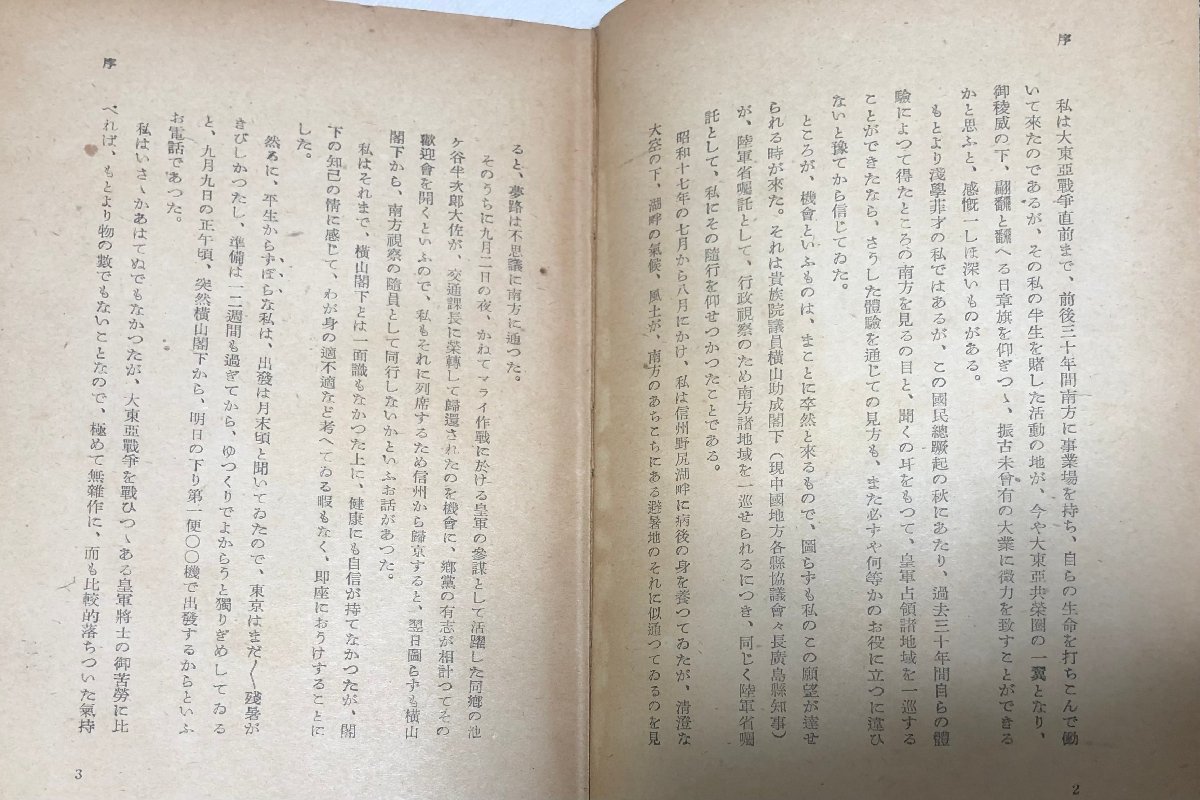 序
私は大東亞戰爭直前まで、前後三十年間南方に事業場を持ち、自らの生命を打ちこんで働
いて來たのであるが、その私の半生を賭した活動の地が、今や大東亞共榮圈の一翼となり、
御稜威の下、翩翻と飜へる日章旗を仰ぎつゝ、振古未曾有の大業に微力を致すことができる
かと思ふと、感慨一しほ深いものがある。
もとより淺學菲才の私ではあるが、この國民總蹶起の秋にあたり、過去三十年間自らの體
驗によつて得たところの南方を見るの目と、聞くの耳をもつて、皇軍占領諸地域を一巡する
ことができたなら、さうした體驗を通じての見方も、また必ずや何等かのお役に立つに違ひ
ないと豫てから信じてゐた。
ところが、機會といふものは、まことに卒然と來るもので、圖らずも私のこの願望が達せ
られる時が來た。それは貴族院議員橫山助成閣下（現中國地方各縣協議會々長廣島縣知事）
が、陸軍省囑託として、行政視察のため南方諸地域を一巡せられるにつき、同じく陸軍省囑
託として、私にその隨行を仰せつかつたことである。
昭和十七年の七月から八月にかけ、私は信州野尻湖畔に病後の身を養つてゐたが、清澄な
大空の下、湖畔の氣候、風土が、南方のあちこちにある避暑地のそれに似通つてゐるのを見
2
序
ると、夢路は不思議に南方に通つた。
そのうちに九月二日の夜、かねてマライ作戰に於ける皇軍の參謀として活躍した同鄕の池
ケ谷半次郎大佐が、交通課長に榮轉して歸還されたのを機會に、鄕黨の有志が相計つてその
歡迎會を開くといふので、私もそれに列席するため信州から歸京すると、翌日圖らずも橫山
閣下から、南方視察の隨員として同行しないかといふお話があつた。
私はそれまで、橫山閣下とは一面識もなかつた上に、健康にも自信が持てなかつたが、閣
下の知己の情に感じて、わが身の適不適など考へてゐる暇もなく、即座におうけすることに
した。
然るに、平生からずぼらな私は、出發は月末頃と聞いてゐたので、東京はまだ〱殘暑が
きびしかつたし、準備は一二週間も過ぎてから、ゆつくりでよからうと獨りぎめしてゐる
と、九月九日の正午頃、突然橫山閣下から、明日の下り第一便〇〇機で出發するからといふ
お電話であつた。
私はいさゝかあはてぬでもなかつたが、大東亞戰爭を戰ひつゝある皇軍將士の御苦勞に比
べれば、もとより物の數でもないことなので、極めて無雜作に、而も比較的落ちついた氣持
3